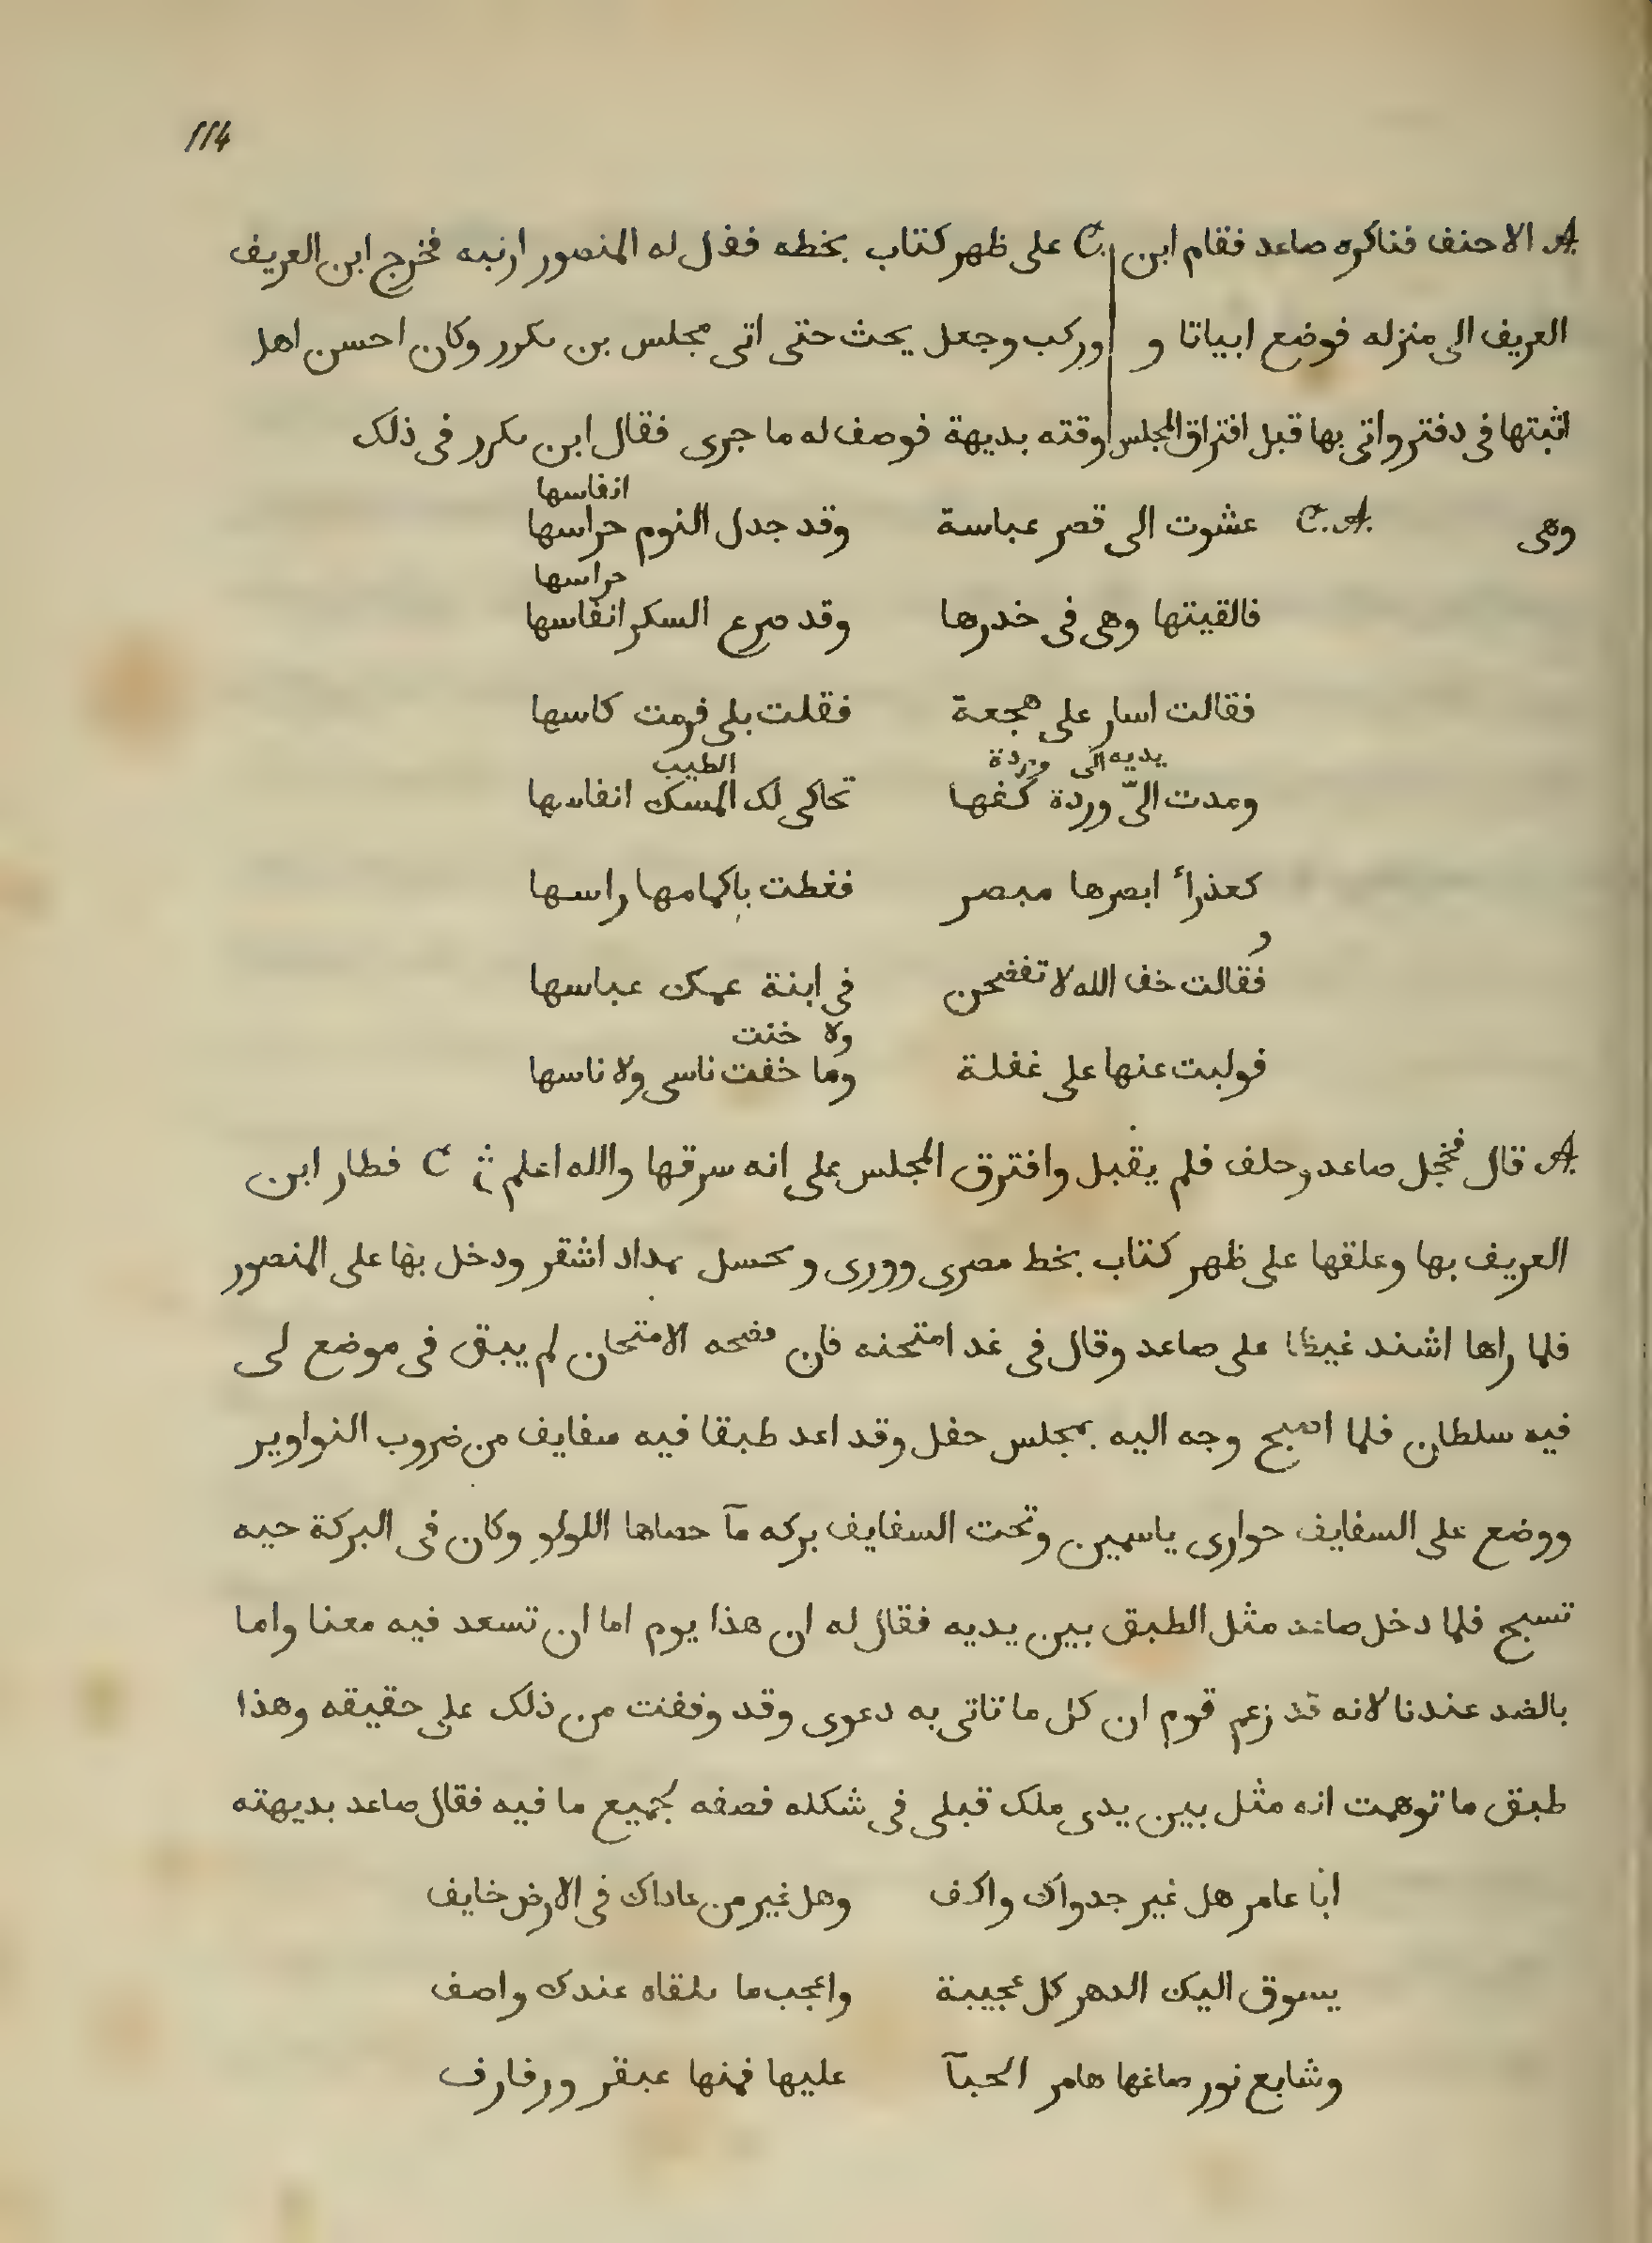 114
A. الاحنف فناكره صاعد فقام ابن C. على ظهر كتاب بخطه فقل له المنصور ارنيه فخرج ابن العريف
العريف الى منزله فوضع ابياتا و وركب وجعل يحث حتى اتى مجلس بن ىدرر وكان احسن اهل
اثبتها فى دفتر واتى بها قبل افتراق المجلس وقته بديهة فوصف له ما جرى فقال ابن ىدرر فى ذلك
انفاسها
وهى C. A. عشوت الى قصر عباسة وقد جدل النوم حراسها
حراسها
فالقيتها وهى فى خدرها وقد صرع السكر انفاسها
فقالت اسار على هجعة فقلت بلى فرمت كاسها
يديه الى وردة الطيب
ومدت الىّ وردة كفها تحاكى لك المسك انفاسها
كعذرأ ابصرها مبصر فغطت باكمامها راسها
و
فقالت خف الله لا تفضحن فى ابنة عمك عباسها
ولا خنت
فوليت عنها على غفلة وما خفت ناسى ولا ناسها
A. قال فخجل صاعد وحلف فلم يقبل وافترق المجلس على انه سرقها والله اعلم C فطار ابن
العريف بها وعلقها على ظهر كتاب بخط مصرى وورى و محسل بمداد اشقر ودخل بها على المنصور
فلما راها اشتد غيظا على صاعد وقال فى غد امتحنه فان فضحه الامتحان لم يبق فى موضع لى
فيه سلطان فلما اصبح وجه اليه بمجلس حفل وقد اعد طبقا فيه سفايف من ضروب النواوير
ووضع على السفايف حوارى ياسمين وتحت السفايف بركه مآ حصاها اللولو وكان فى البركة حيه
تسبح فلما دخل صاعد مثل الطبق بين يديه فقال له ان هذا يوم اما ان تسعد فيه معنا واما
بالضد عندنا لانه قد زعم قوم ان كل ما تاتى به دعوى وقد وقفت من ذلك على حقيقه وهذا
طبق ما توهمت انه مثل بين يدى ملك قبلى فى شكله فصفه بجميع ما فيه فقال صاعد بديهته
ابا عامر هل غير جدواك واكف وهل غير من عاداك فى الارض خايف
يسوق اليك الدهر كل عجيبة واعجب ما ىلقاه عندك واصف
وشايع نور صاغها هامر الحبآ عليها فمنها عبقر ورفارف